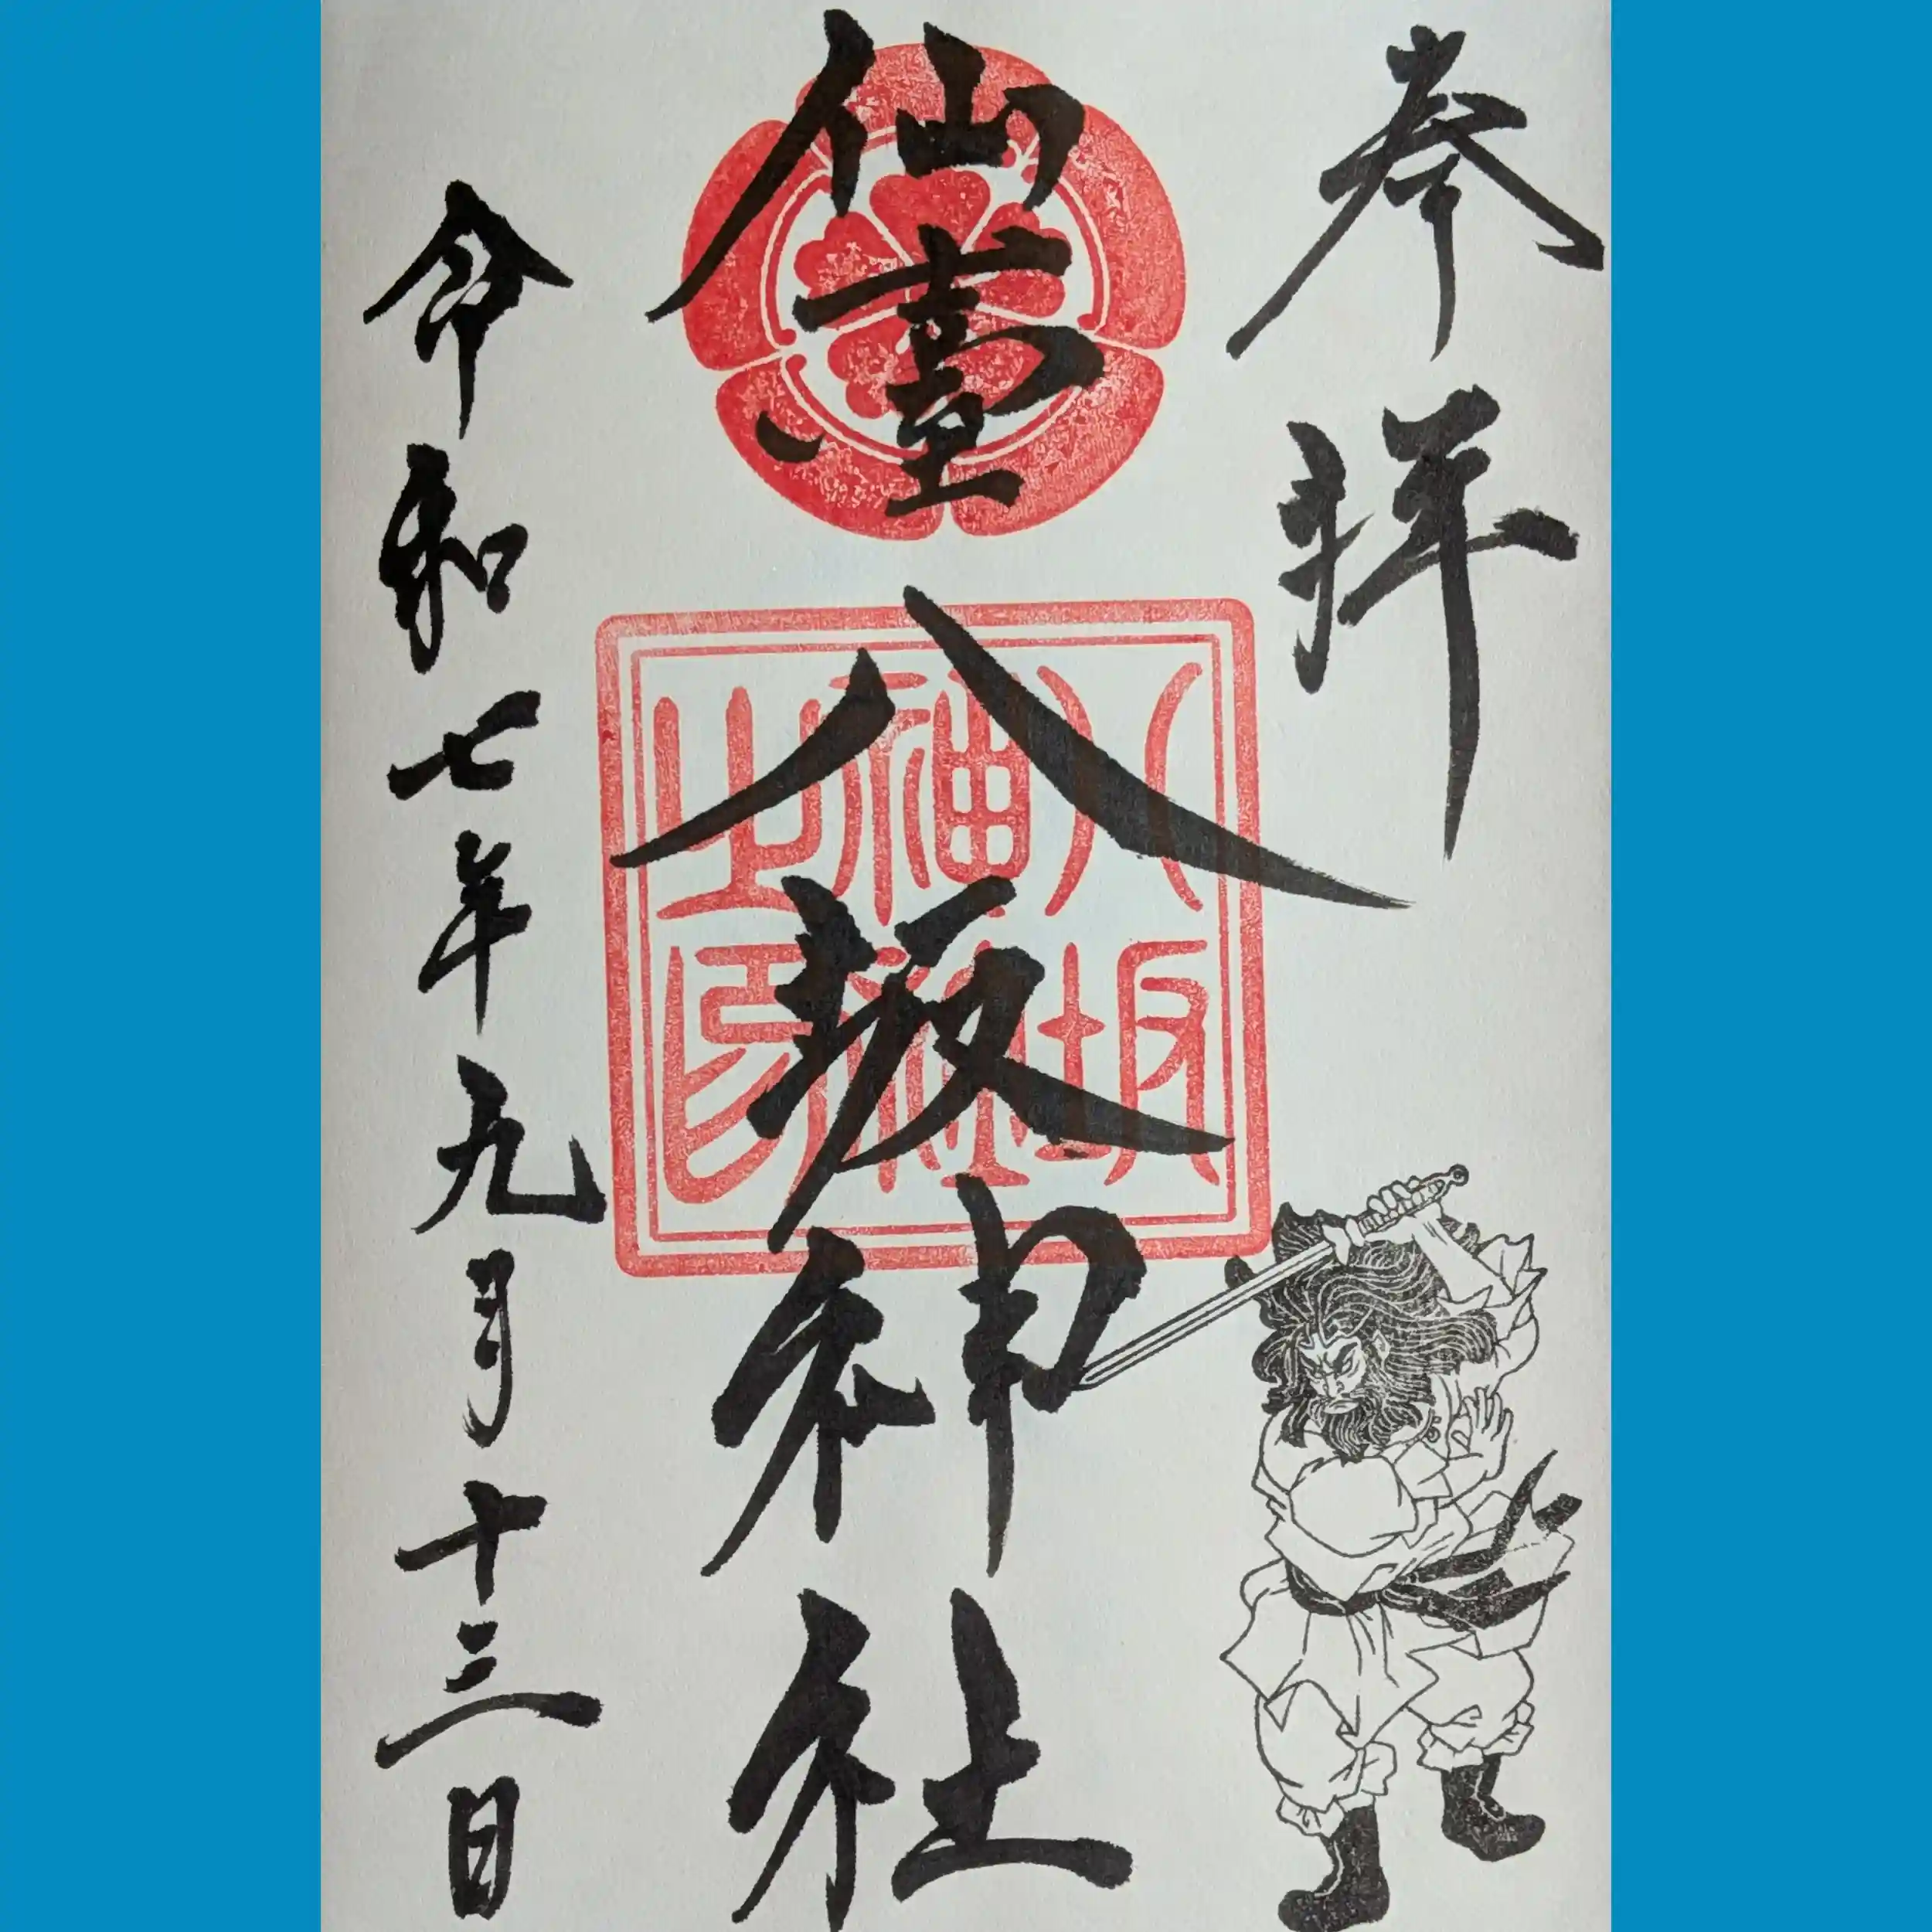 奉拝
仙臺八坂神社
八坂
神社
之印
令和七年九月十三日